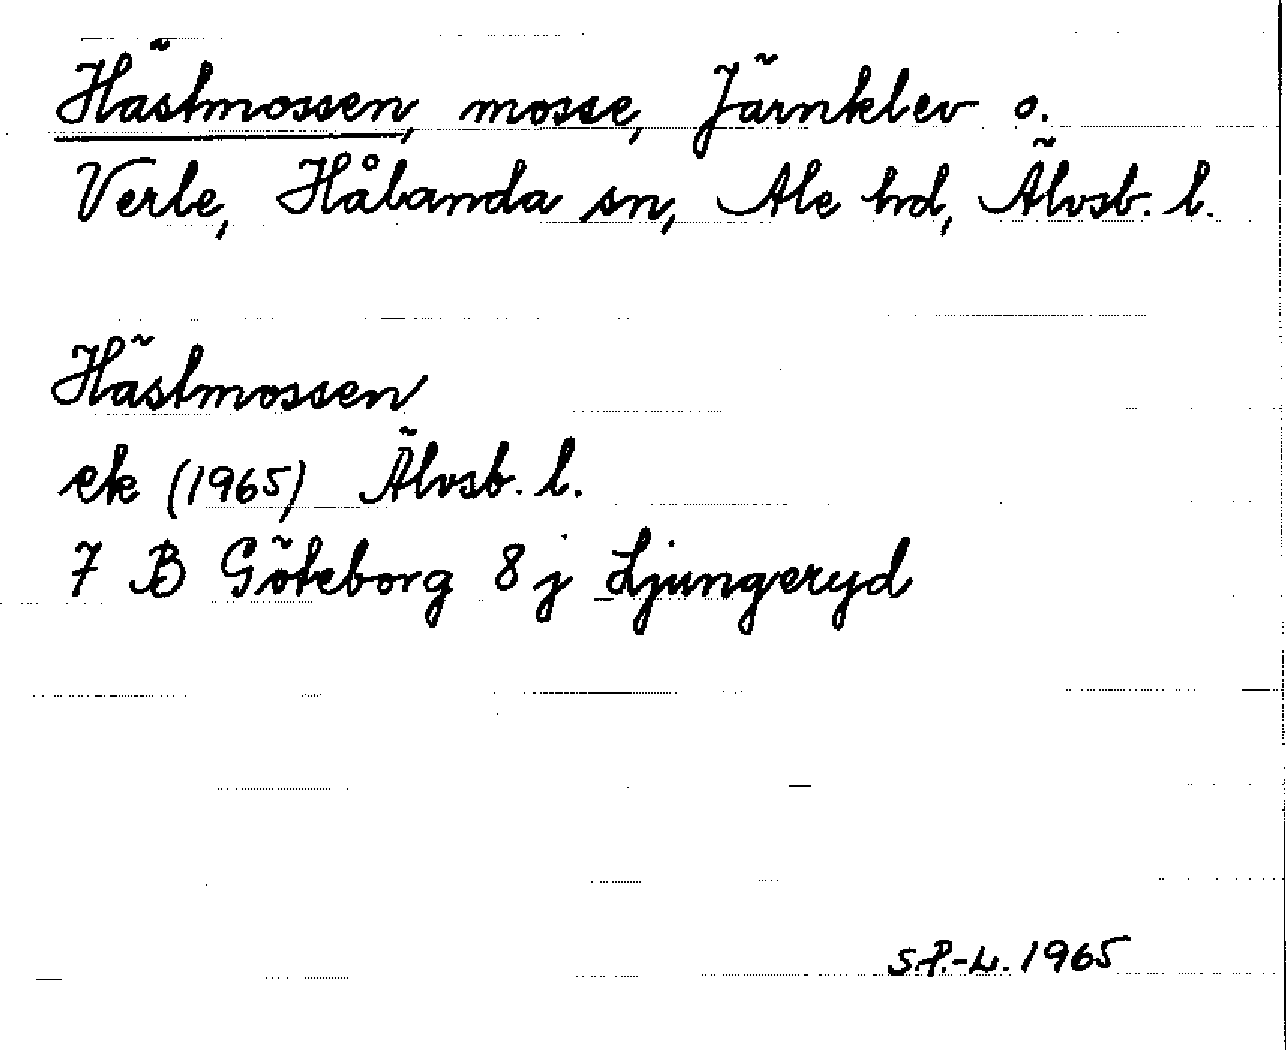 Hästmossen, mosse, Järnklev o.
Verle, Hålanda sn, Ale hd, Älvsb. l.
Hästmossen
ek (1965) Älvsb. l.
7 B Göteborg 8 j Ljungeryd
S.P.-L. 1965